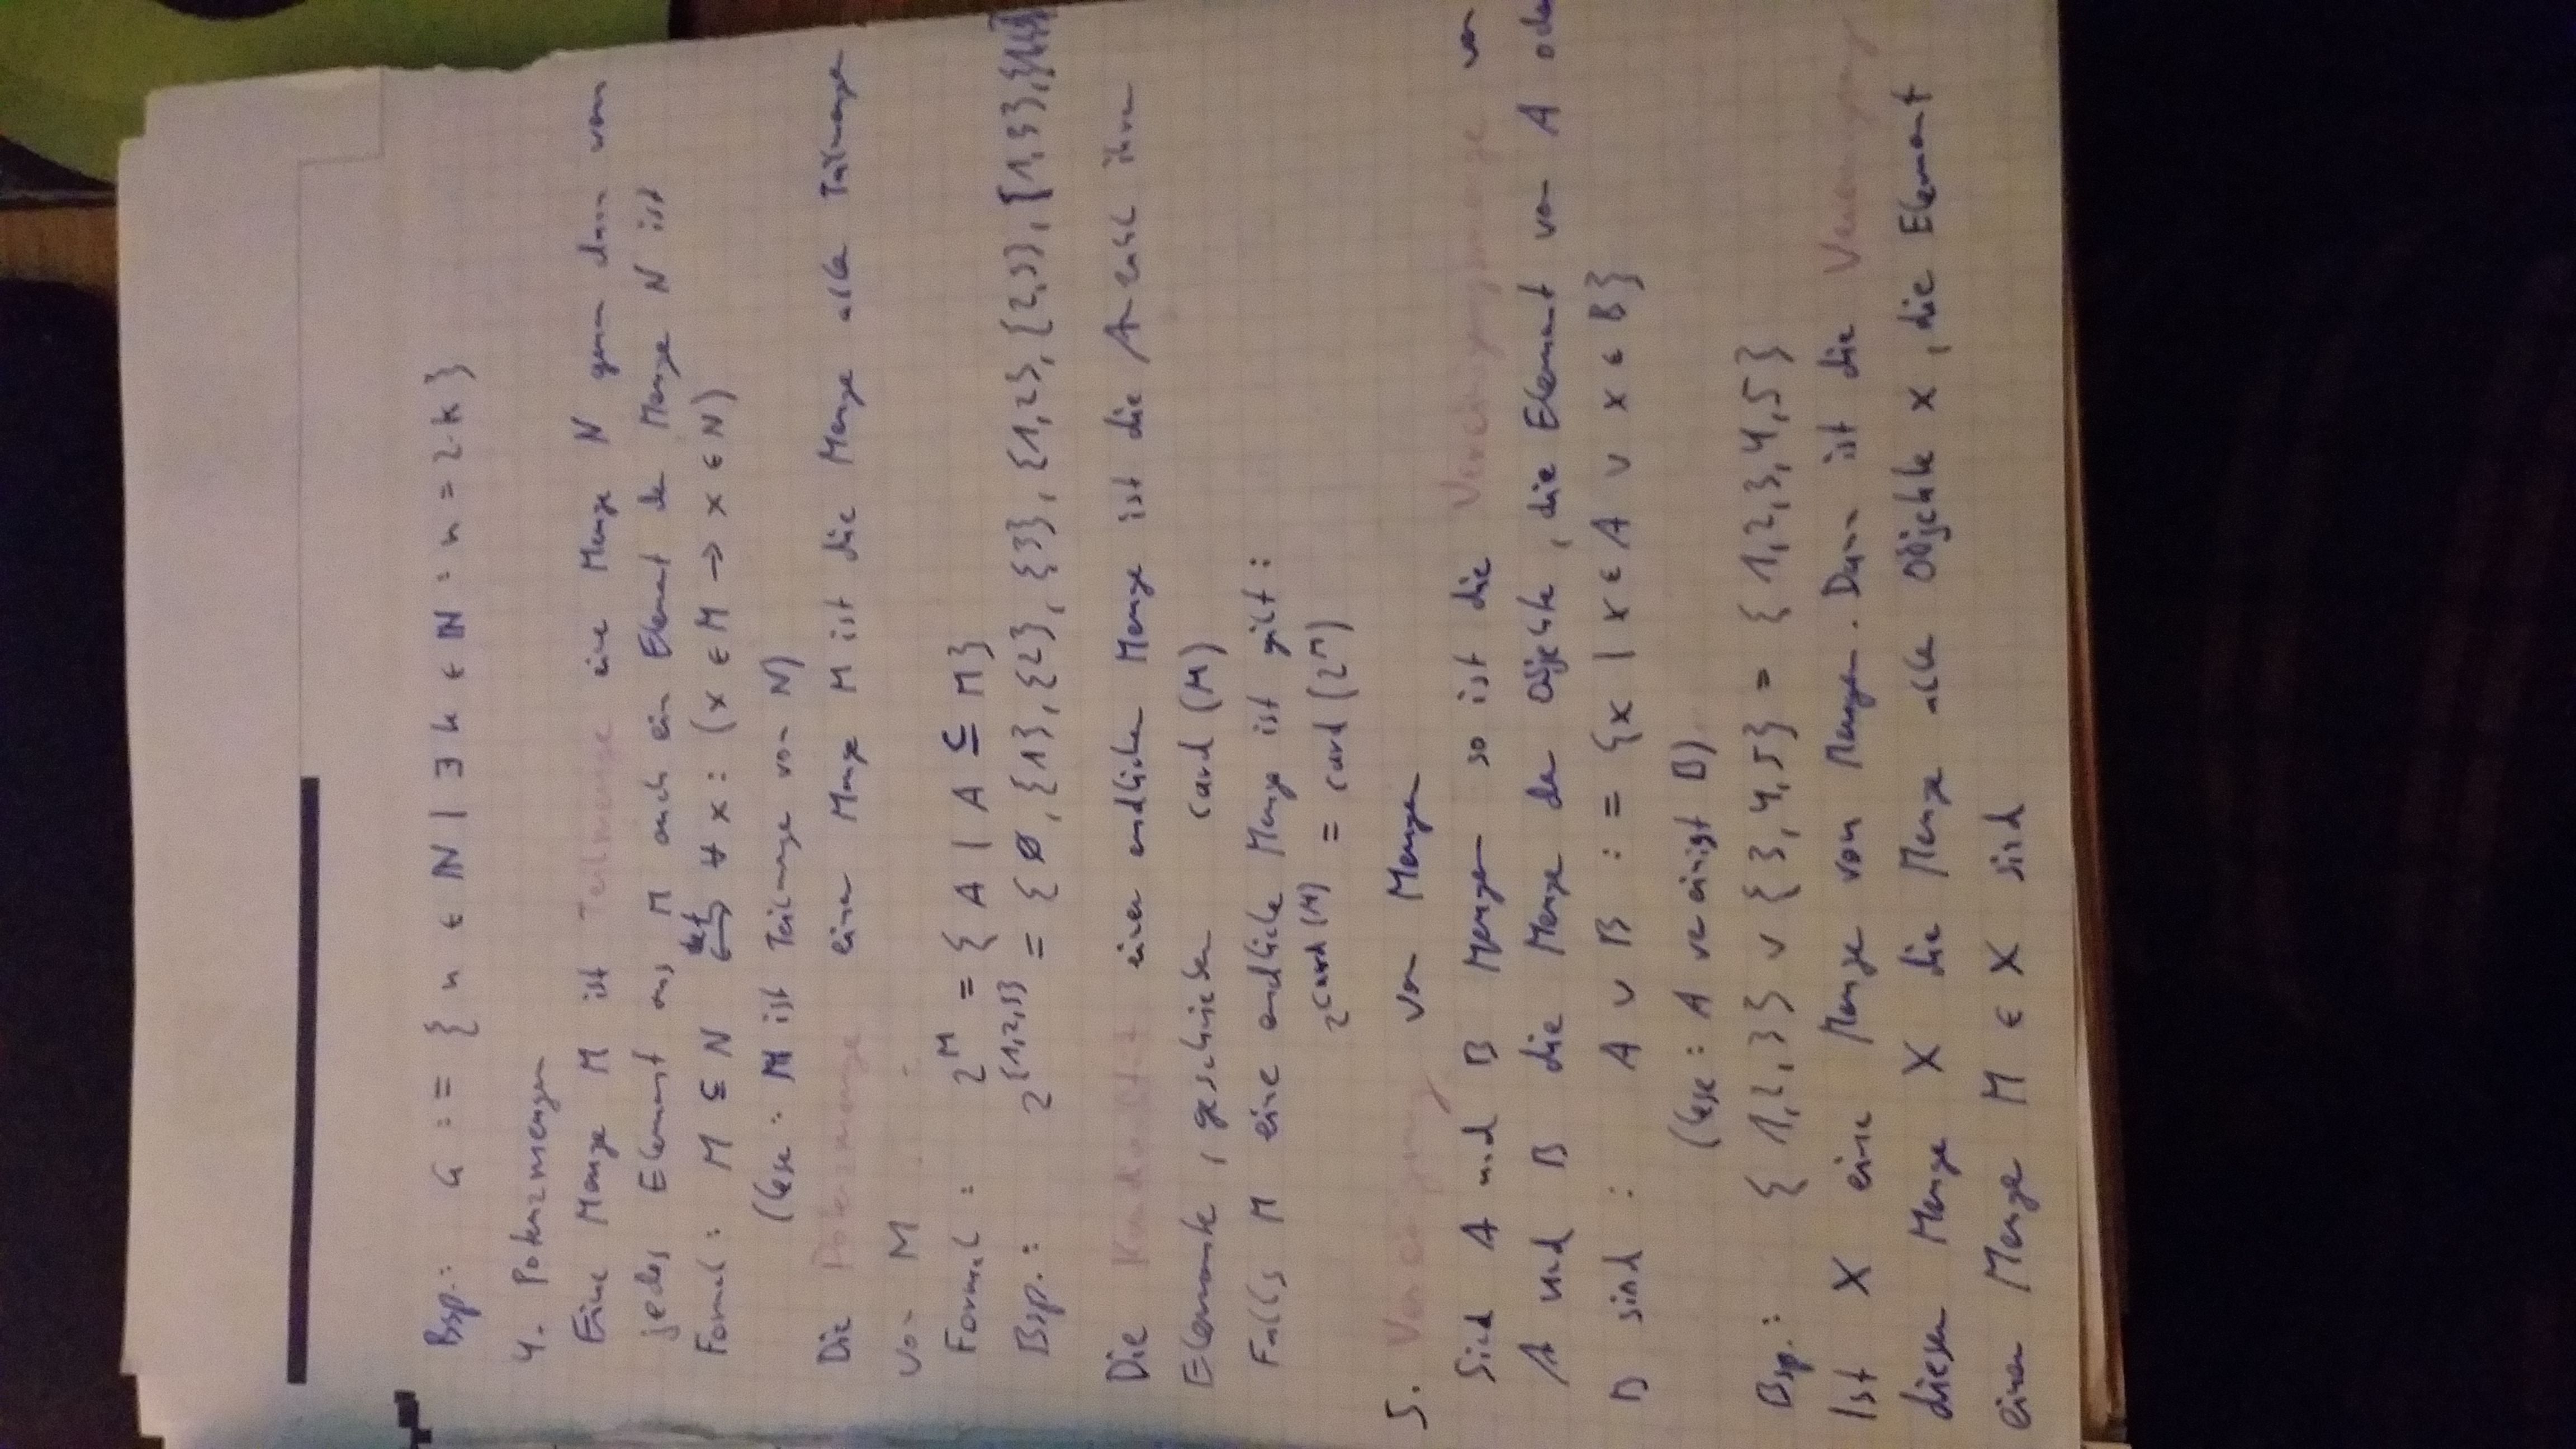 Bsp.: G := { n ∈ ℕ | ∃ k ∈ ℕ : n = 2·k }
4. Potenzmengen
Eine Menge M ist Teilmenge eine Menge N genau dann wenn
jedes Element aus M auch ein Element der Menge N ist
Formal: M ⊆ N ⟺def ∀ x : (x ∈ M → x ∈ N)
(lese: M ist Teilmenge von N)
Die Potenzmenge einer Menge M ist die Menge aller Teilmengen
von M
Formal: 2^M = { A | A ⊆ M }
Bsp.: 2^{1,2,3} = { ∅, {1}, {2}, {3}, {1,2}, {2,3}, {1,3},
Die Kardinalität einer endlichen Menge ist die Anzahl ihrer
Elemente, geschrieben card (M)
Falls M eine endliche Menge ist gilt:
2^card (M) = card (2^M)
5. Vereinigung von Mengen
Sind A und B Mengen so ist die Vereinigungsmenge von
A und B die Menge der Objekte, die Element von A oder
B sind: A ∪ B := {x | x ∈ A ∨ x ∈ B}
(lese: A vereinigt B)
Bsp.: { 1,2,3} ∪ {3,4,5} = { 1,2,3,4,5}
Ist X eine Menge von Mengen. Dann ist die Vereinigung
dieser Menge X die Menge aller Objekte x, die Element
einer Menge M ∈ X sind